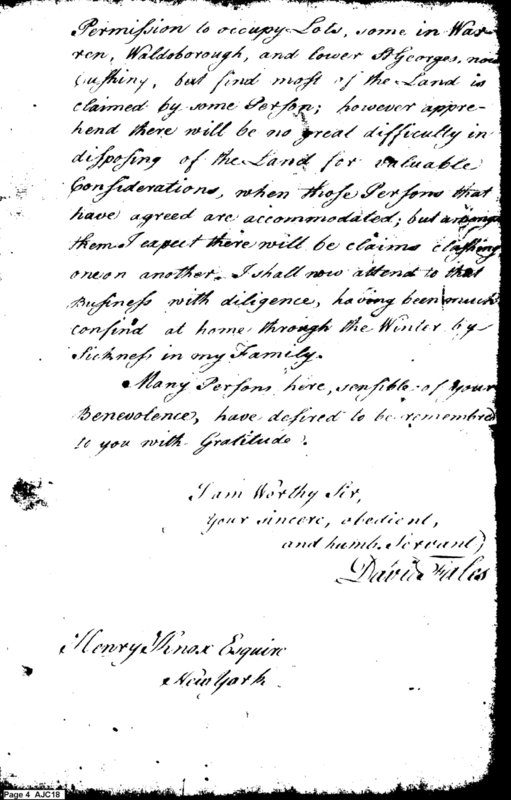 Permission to occupy Lots, some in War-
ren, Waldoborough, and lower St Georges, now
Cushing, but find most of the Land is
claimed by some Person; however appre-
hend there will be no great difficulty in
disposing of the Land for valuable
Considerations, when those Persons that
have agreed are accommodated; but amongst
them I expect there will be claims clashing
one on another. I shall now attend to that
Business with diligence, having been much
confind at home through the Winter by
Sickness in my Family.
Many Persons here, sensible of Your
Benevolence, have desired to be remembred
to you with Gratitude.
I am Worthy Sir,
Your sincere, obedient,
and humb. Servant,
David Fales
Henry Knox Esquire
New York
Page 4 AJC18